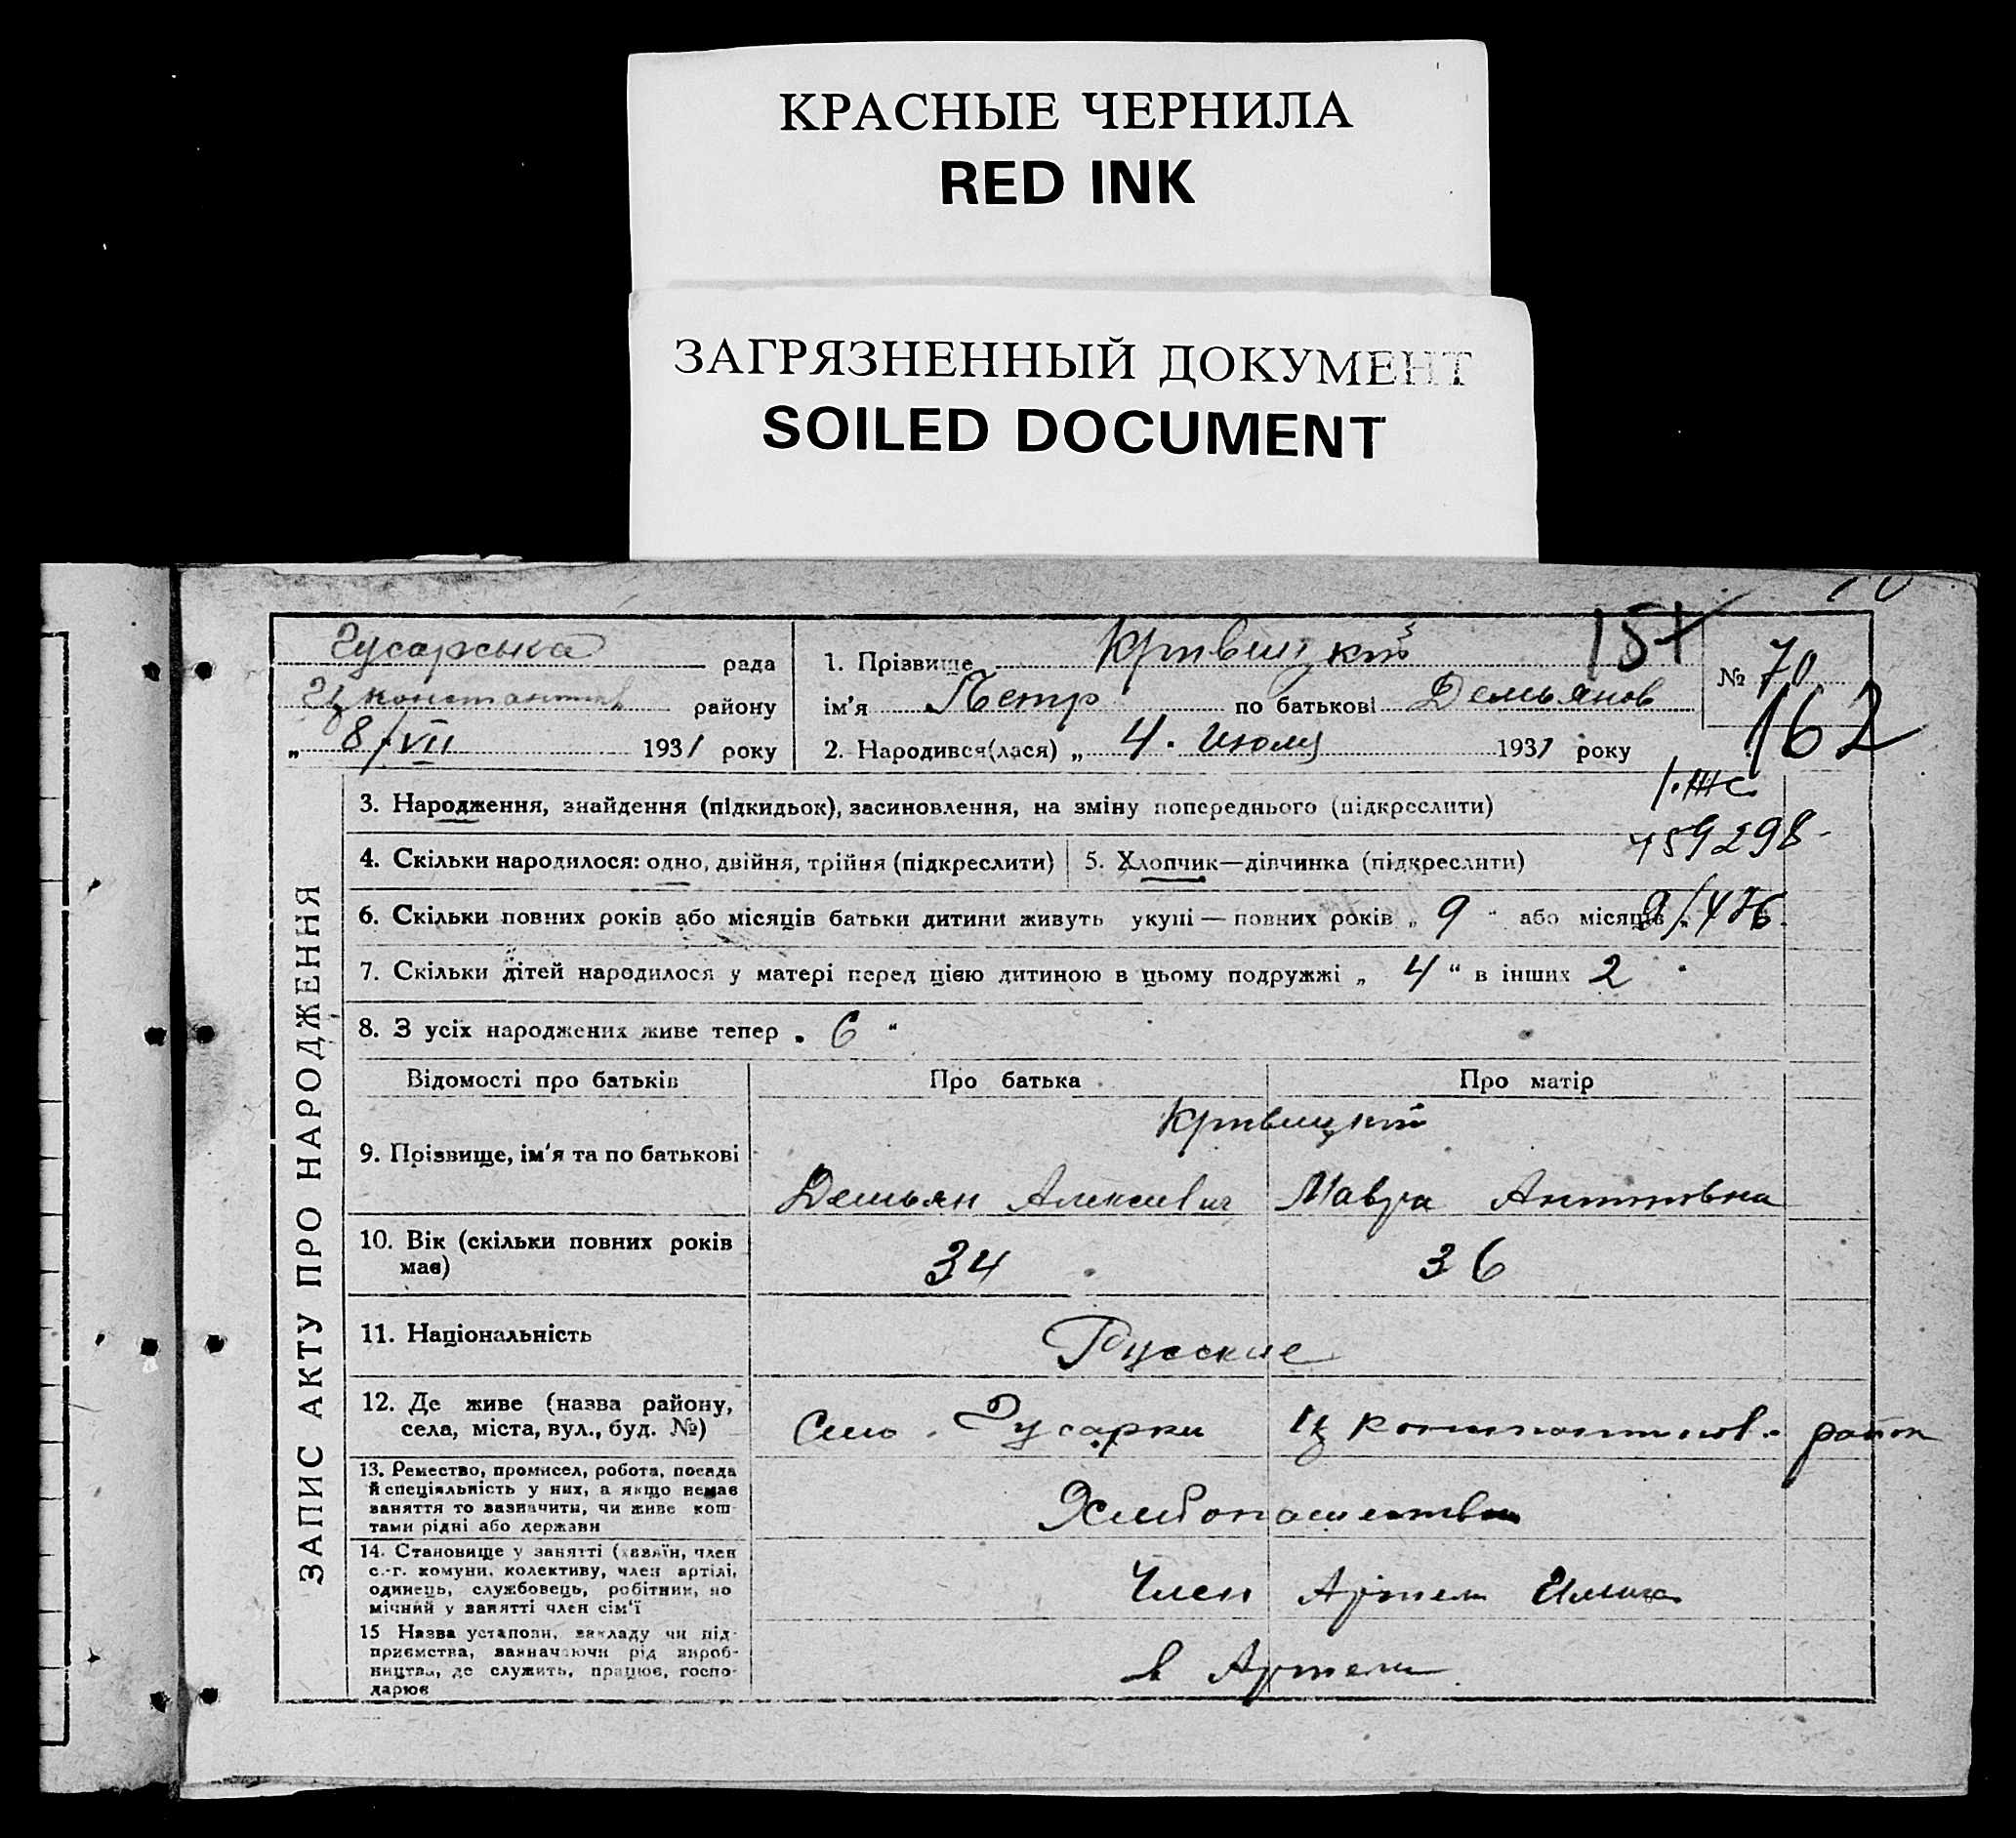 КРАСНЫЕ ЧЕРНИЛА
RED INK
ЗАГРЯЗНЕННЫЙ ДОКУМЕНТ
SOILED DOCUMENT
ЗАПИС АКТУ ПРО НАРОДЖЕННЯ
Гусарська рада
району
„ 8/VII 1931 року
1. Прізвище Кривицкий 157
ім'я Петр по батькові Демьянов
2. Народився(лася) „ 4. Июля 1931 року
№ 70
162
3. Народження, знайдення (підкидьок), засиновлення, на зміну попереднього (підкреслити)
4. Скільки народилося: одно, двійня, трійня (підкреслити)
5. Хлопчик—дівчинка (підкреслити)
459298
6. Скільки повних років або місяців батьки дитини живуть укупі — повних років „ 9 " або місяців „
7. Скільки дітей народилося у матері перед цією дитиною в цьому подружжі „ 4 " в інших 2
8. З усіх народжених живе тепер „ 6 "
Відомості про батьків Про батька Про матір
Кривицкий
9. Прізвище, ім'я та по батькові
Демьян Алексеевич Мавра Антоновна
10. Вік (скільки повних років має) 34 36
11. Національність Русские
12. Де живе (назва району, села, міста, вул., буд. №)
Село Гусарки район
13. Ремество, промисел, робота, посада
й спеціяльність у них, а якщо немає
заняття то зазначити, чи живе кош-
тами рідні або держави
Хлебопашество
14. Становище у занятті (хазяїн, член
с.-г. комуни, колективу, член артілі,
одинець, службовець, робітник, по
мічний у занятті член сім'ї
Член Артели
15 Назва установи, закладу чи під-
приємства, зазначаючи рід вироб-
ництва, де служить, працює, госпо-
дарює
в Артели